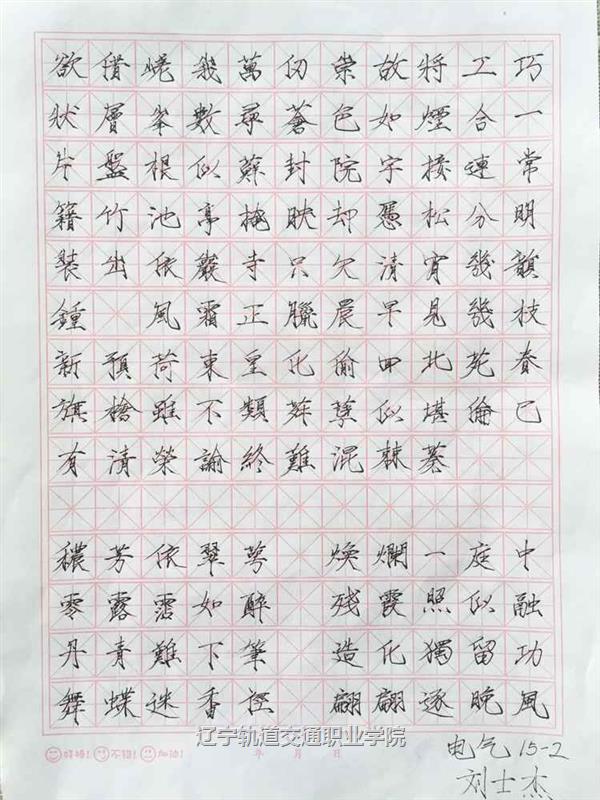 欲借嵯峨萬仞崇故將工巧
狀層峯數尋蒼色如煙合一
片盤根似蘚封院宇接連常
籍竹池亭掩映却憑松分明
裝出依巖寺只欠清宵幾韻
鍾 風霜正臘晨早見幾枝
新預荷東皇化偷甲北苑春
旗槍雖不類荈荂似堪倫已
有清榮諭終難混棘蓁
穠芳依翠萼 煥爛一庭中
零露霑如醉 残霞照似融
丹青難下筆 造化獨留功
舞蝶迷香徑 翩翩逐晚風
好棒！不错！加油！ 年 月 日
辽宁轨道交通职业学院
电气15-2
刘士杰